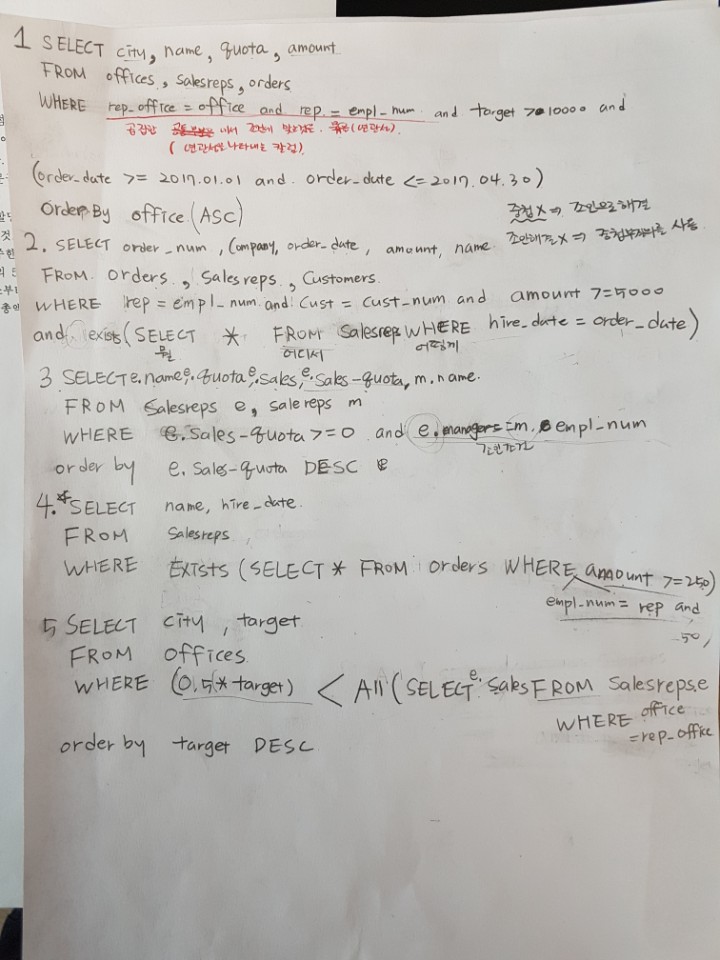 1 SELECT city, name, quota, amount
FROM offices, salesreps, orders
WHERE rep_office = office and rep = empl_num and target >= 10000 and
(연관성을 나타내는 칼럼)
(order_date >= 2017.01.01 and order_date <= 2017.04.30)
Order By office (ASC)
중첩 X => 조인으로 해결
2. SELECT order_num, Company, order_date, amount, name
조인해결 X => 중첩부질의를 사용
FROM orders, Salesreps, Customers
WHERE rep = empl_num and Cust = cust_num and amount >= 5000
and exists (SELECT * FROM Salesreps WHERE hire_date = order_date)
뭘 어디서 어떻게
3 SELECT e.name, e.quota, e.sales, e.sales-quota, m.name.
FROM Salesreps e, salereps m
WHERE e.sales-quota >= 0 and e.manager = m.empl_num
order by e.sales-quota DESC
4.* SELECT name, hire_date.
FROM Salesreps
WHERE EXISTS (SELECT * FROM orders WHERE amount >= 250)
empl-num = rep and
50,
5 SELECT city, target
FROM offices
WHERE (0.5 * target) < All (SELECT e.sales FROM Salesreps e
WHERE office
= rep_office
order by target DESC